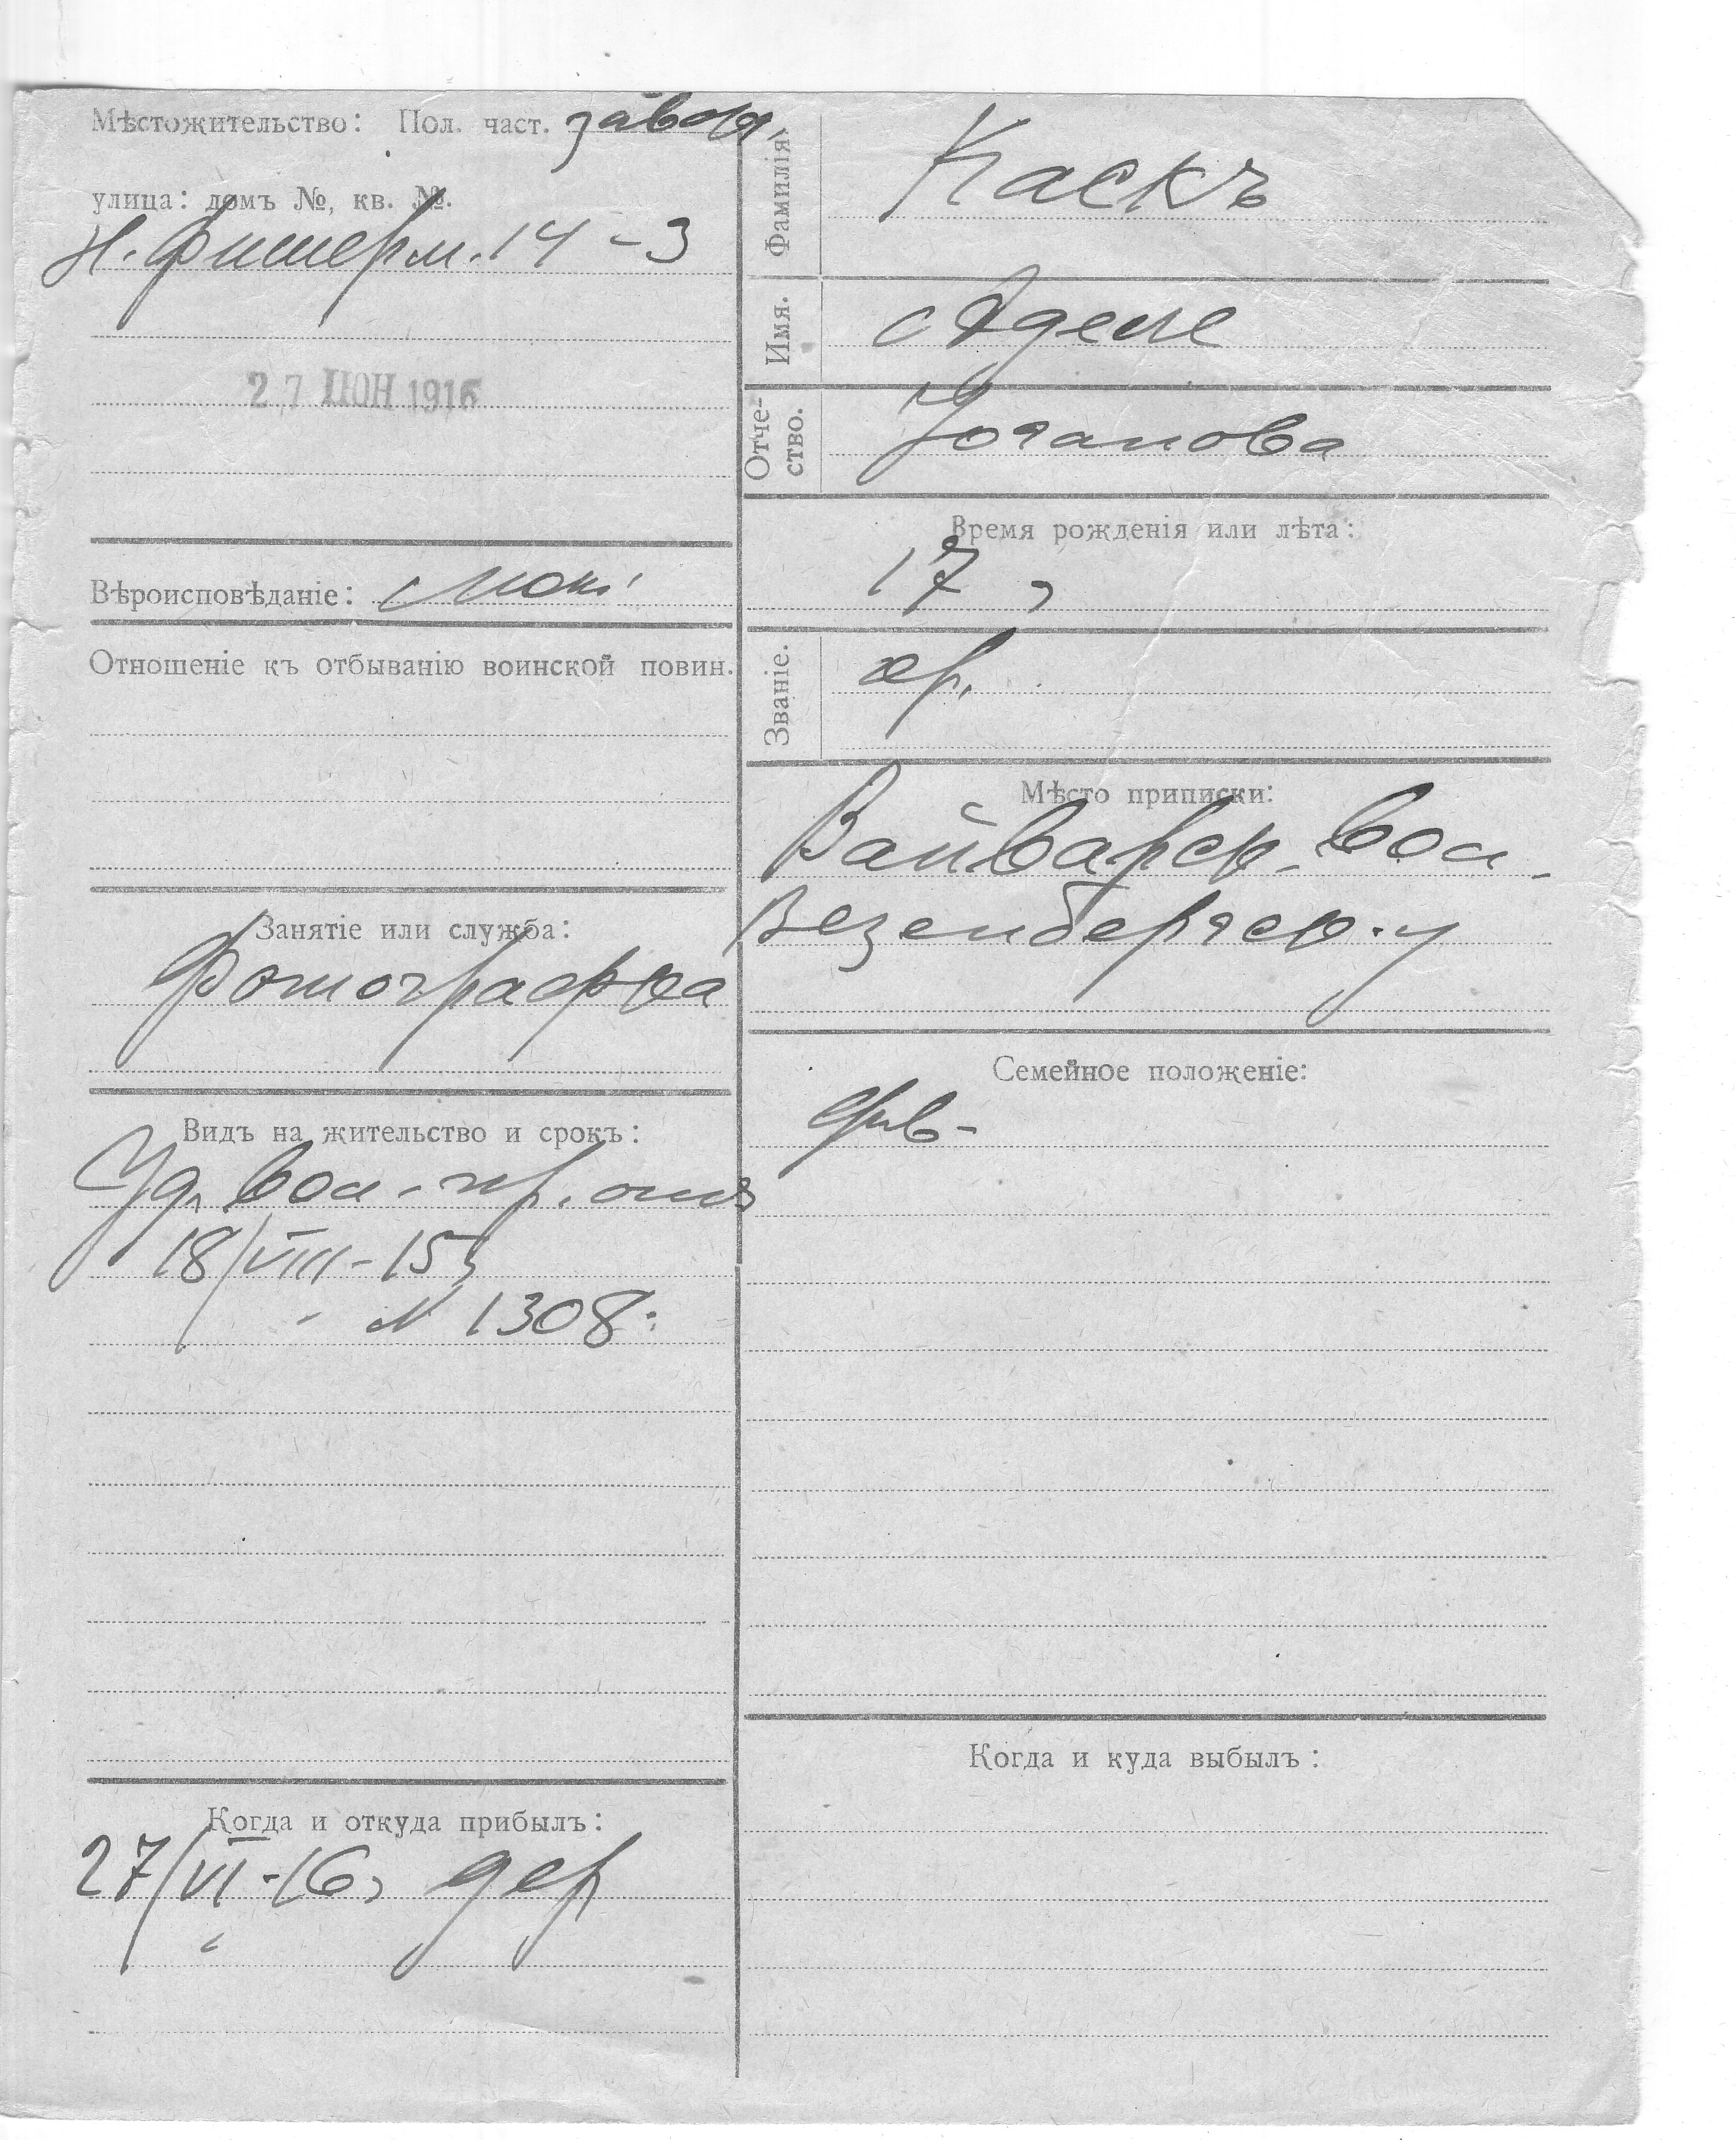 Мѣстожительство: Пол. част.
улица: домъ №, кв. №.
14 - 3
27 ІЮН 1916
Вѣроисповѣданіе: Лют
Отношеніе къ отбыванію воинской повин.
Занятіе или служба:
Фотографка
Видъ на жительство и срокъ:
Уд. вол. пр. отъ
18/VIII - 15
N 1308.
Когда и откуда прибылъ:
27/VI - 16 дер
Фамилія
Каскъ
Имя.
Аделе
Отче-
ство.
Юганова
Время рожденія или лѣта:
17
Званіе.
кр.
Мѣсто приписки:
Вайварск. вол.
Везенбергск. у
Семейное положеніе:
Когда и куда выбылъ: